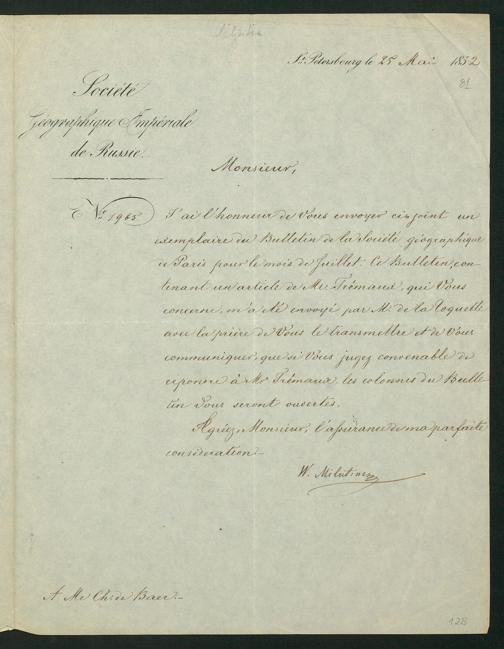 St. Petersbourg le 25 Mai 1852
81
Société
Géographique Impériale
de Russie.
Monsieur,
No. 1965
J'ai l'honneur de Vous envoyer ci-joint un
exemplaire du Bulletin de la Société géographique
de Paris pour le mois de Juillet. Ce Bulletin, con-
tenant un article de Mr. Trémaux, qui Vous
concerne, m'a été envoyé par M. de la Roquette
avec la prière de Vous le transmettre et de Vous
communiquer que si Vous jugez convenable de
reponre à Mr Trémaux, les colonnes du Bulle-
tin Vous seront ouvertes.
Agréez, Monsieur, l'assurance de ma parfaite
considération.
W. Milutine
A Mr Ch. de Baer.
128